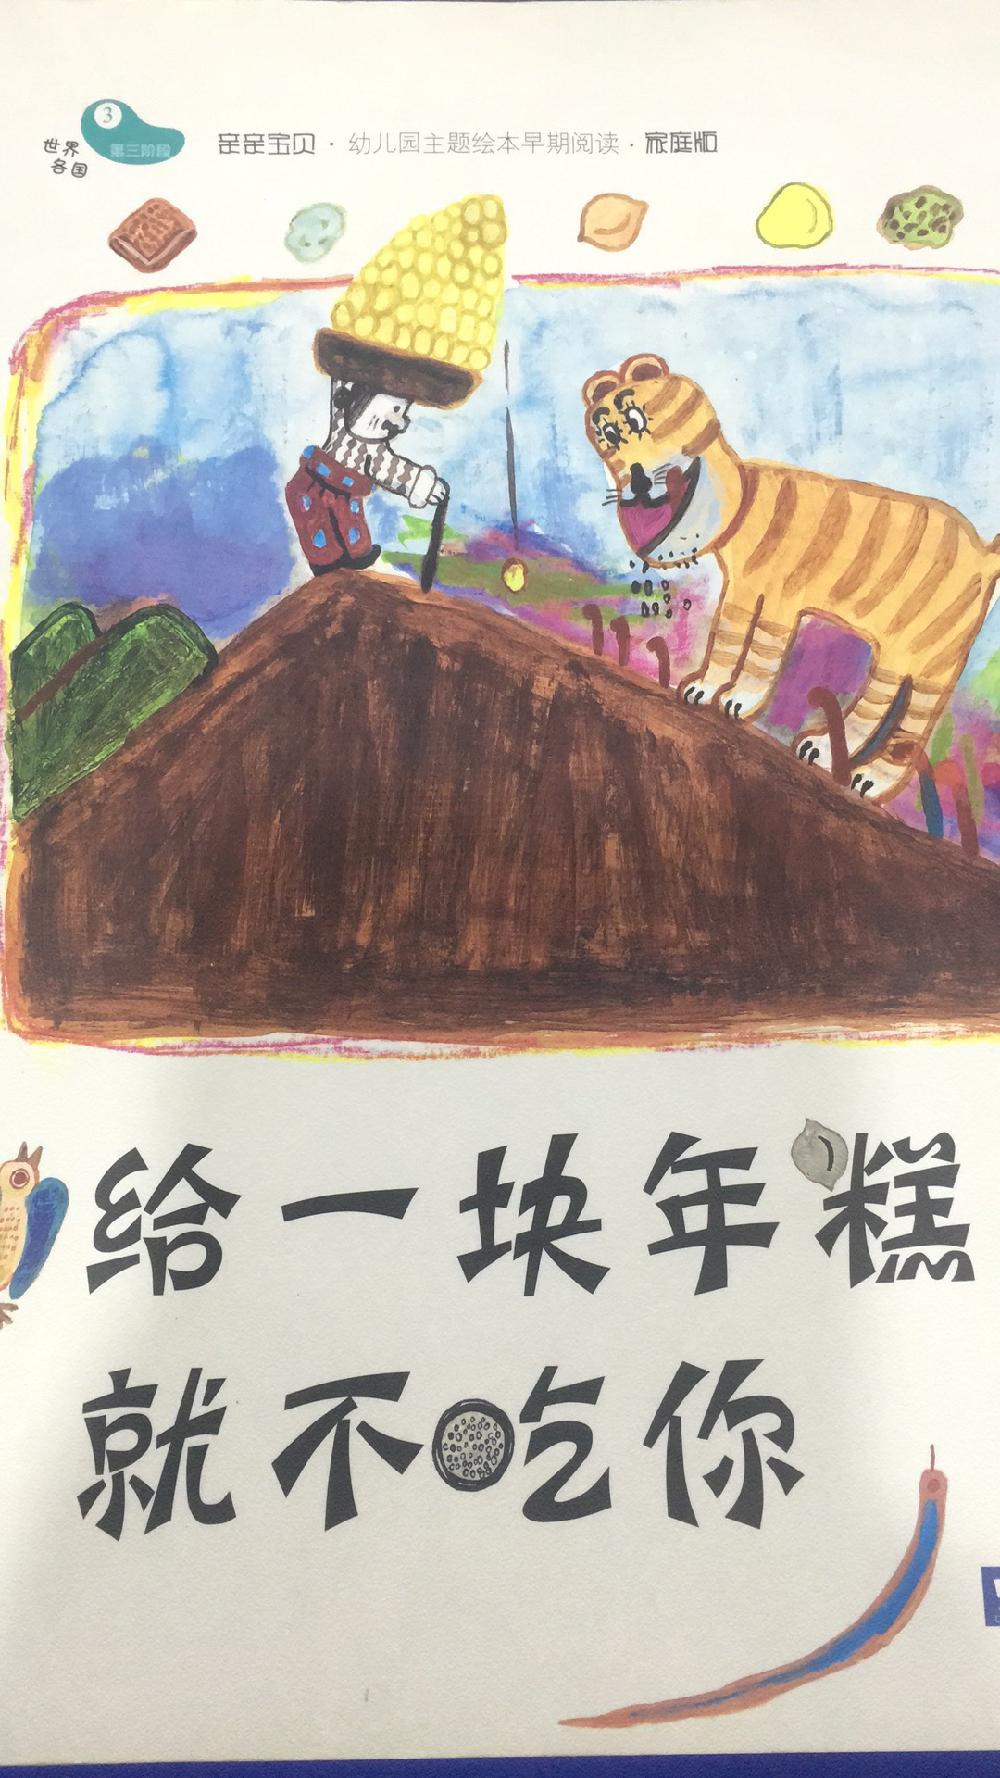 3
第三阶段
世界
各国
亲亲宝贝·幼儿园主题绘本早期阅读·家庭版
给一块年糕
就不吃你